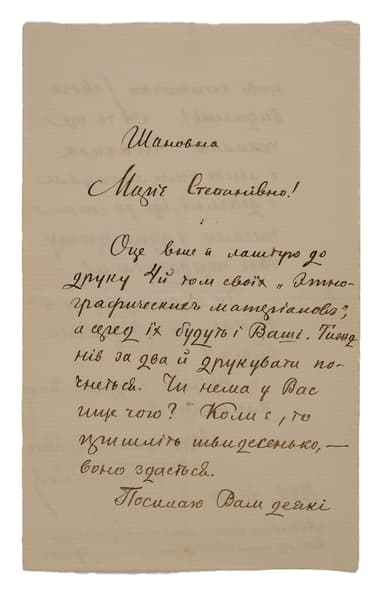 Шановна
Маріє Степанівно!
Оце вже й лаштую до
друку 4й том своїх „Этно-
графическихъ матеріаловъ",
а серед їх будуть і Ваші. Тиж
нів за два й друкувати по-
чнеться. Чи нема у Вас
ище чого? Коли є, то
пришліть швидесенько, —
воно здасться.
Посилаю Вам деякі